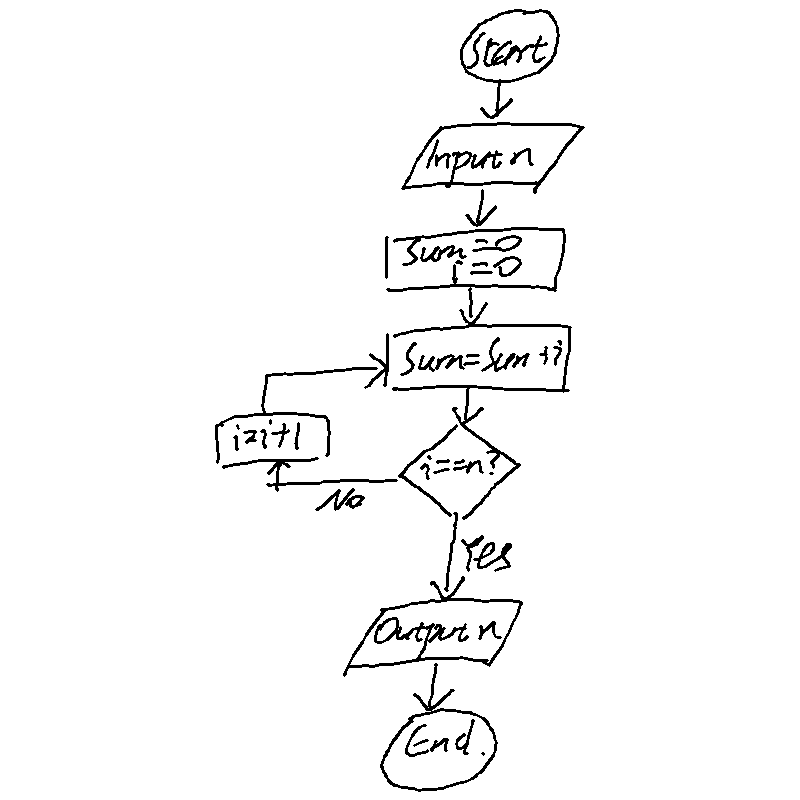 Start
Input n
Sum = 0
i = 0
Sum = Sum + i
i = i + 1
i == n?
No
Yes
Output n
End.